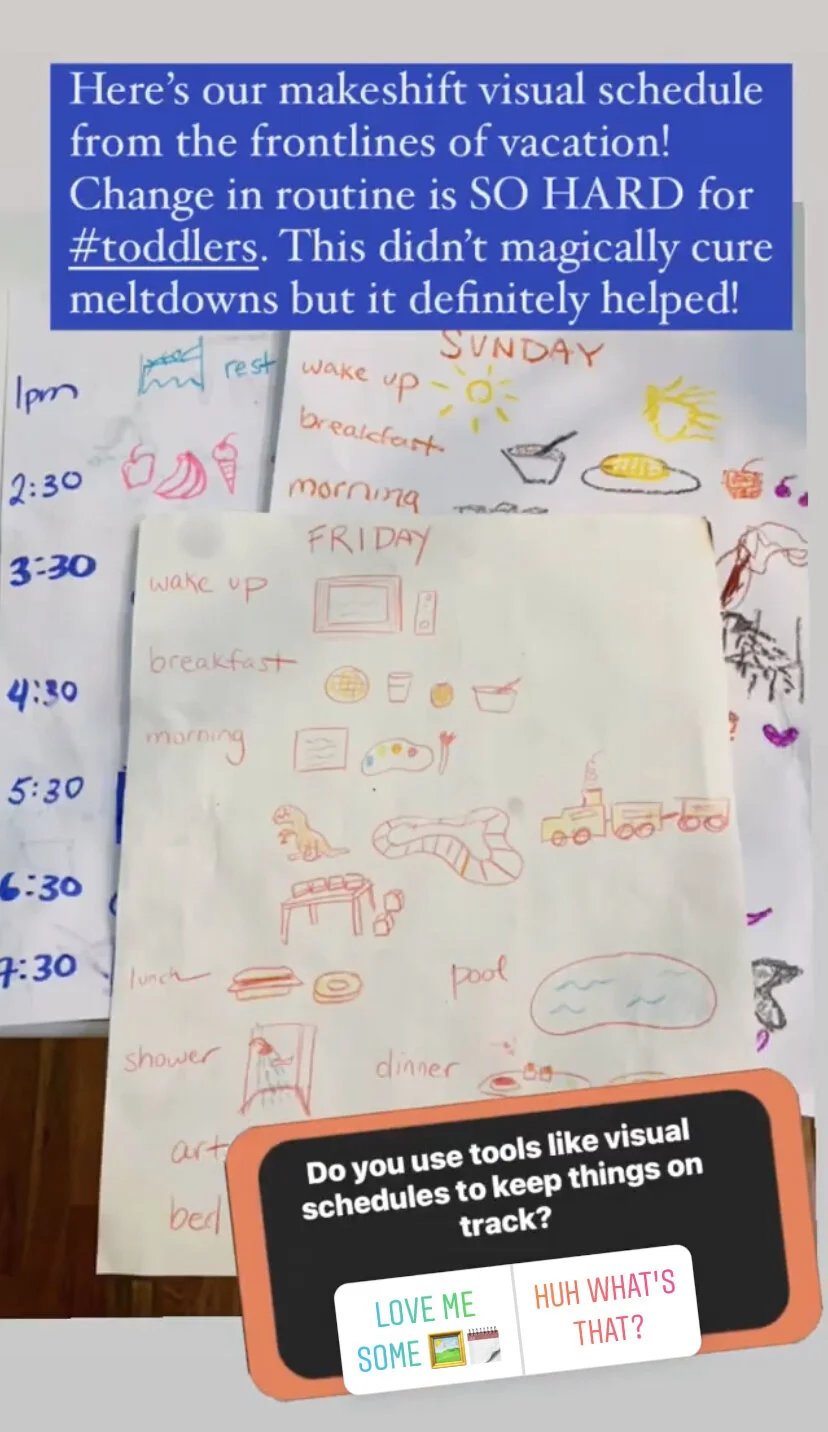 Here's our makeshift visual schedule
from the frontlines of vacation!
Change in routine is SO HARD for
#toddlers. This didn't magically cure
meltdowns but it definitely helped!
1pm
rest
2:30
3:30
4:30
5:30
6:30
7:30
SUNDAY
wake up
breakfast
morning
FRIDAY
wake up
breakfast
morning
lunch
pool
shower
dinner
art
bed
Do you use tools like visual
schedules to keep things on
track?
LOVE ME
SOME 🖼️🗓️
HUH WHAT'S
THAT?